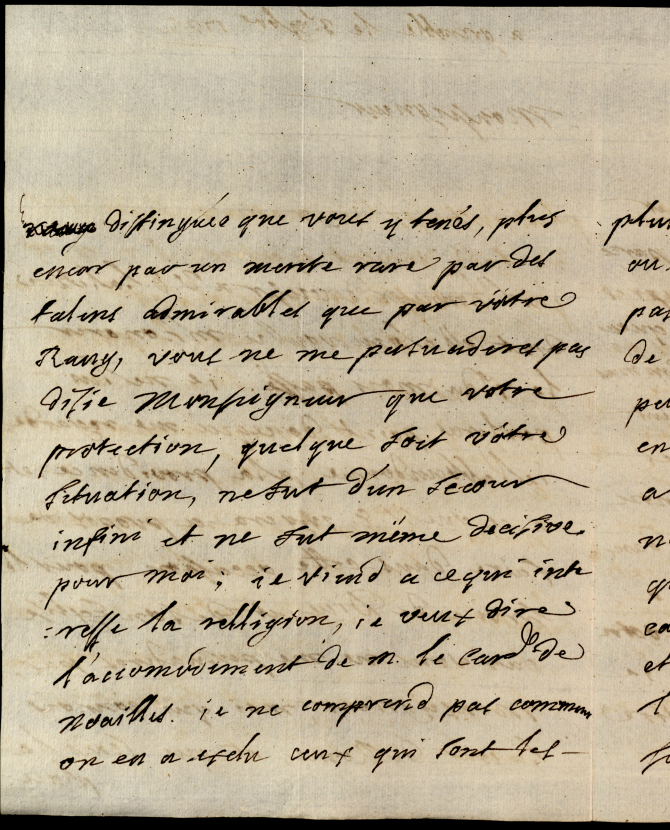 distinguée que vous y tenés, plus
encor par un merite rare par des
talens admirables que par vôtre
Rang, vous ne me persuaderes pas
disie Monseigneur que votre
protection, quelque soit vôtre
situation, ne fut d'un secour
infini et ne fut même decisive
pour moi; ie viend a ce qui inte
:resse la relligion, ie veux dire
l'accomodement de m. le Card. de
Noailles. ie ne comprend pas commen
on en a exclu ceux qui sont les
plus
ou
pas
de
en
a
et